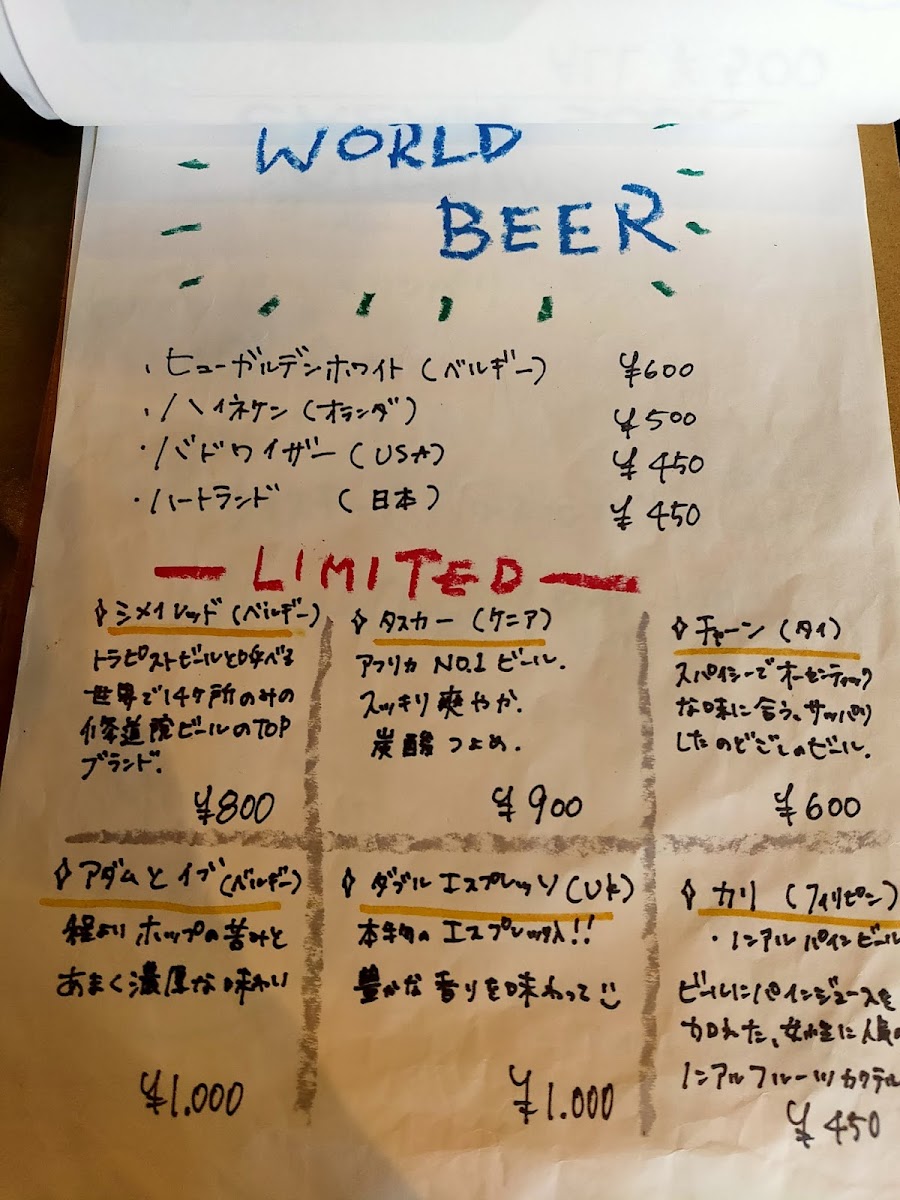 WORLD
BEER
・ヒューガルデンホワイト(ベルギー) ¥600
・ハイネケン(オランダ) ¥500
・バドワイザー(USA) ¥450
・ハートランド (日本) ¥450
ー LIMITED ー
◇シメイレッド(ベルギー)
トラピストビールと呼べる
世界で14ヶ所のみの
修道院ビールのTOP
ブランド.
¥800
◇タスカー(ケニア)
アフリカ NO.1 ビール.
スッキリ爽やか.
炭酸つよめ.
¥900
◇チャーン(タイ)
スパイシーでオーセンティック
な味に合う、サッパリ
したのどごしのビール.
¥600
◇アダムとイブ(ベルギー)
程よりホップの苦みと
あまく濃厚な味わい
¥1.000
◇ダブルエスプレッソ(UK)
本物のエスプレッソ入!!
豊かな香りを味わって
¥1.000
◇カリ(フィリピン)
・ノンアルパインビール
ビールにパインジュースを
加れた、女性に人気の
ノンアルフルーツカクテル
¥450